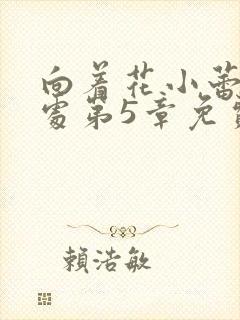 向着花小蕾
处第5章免
賴浩敏